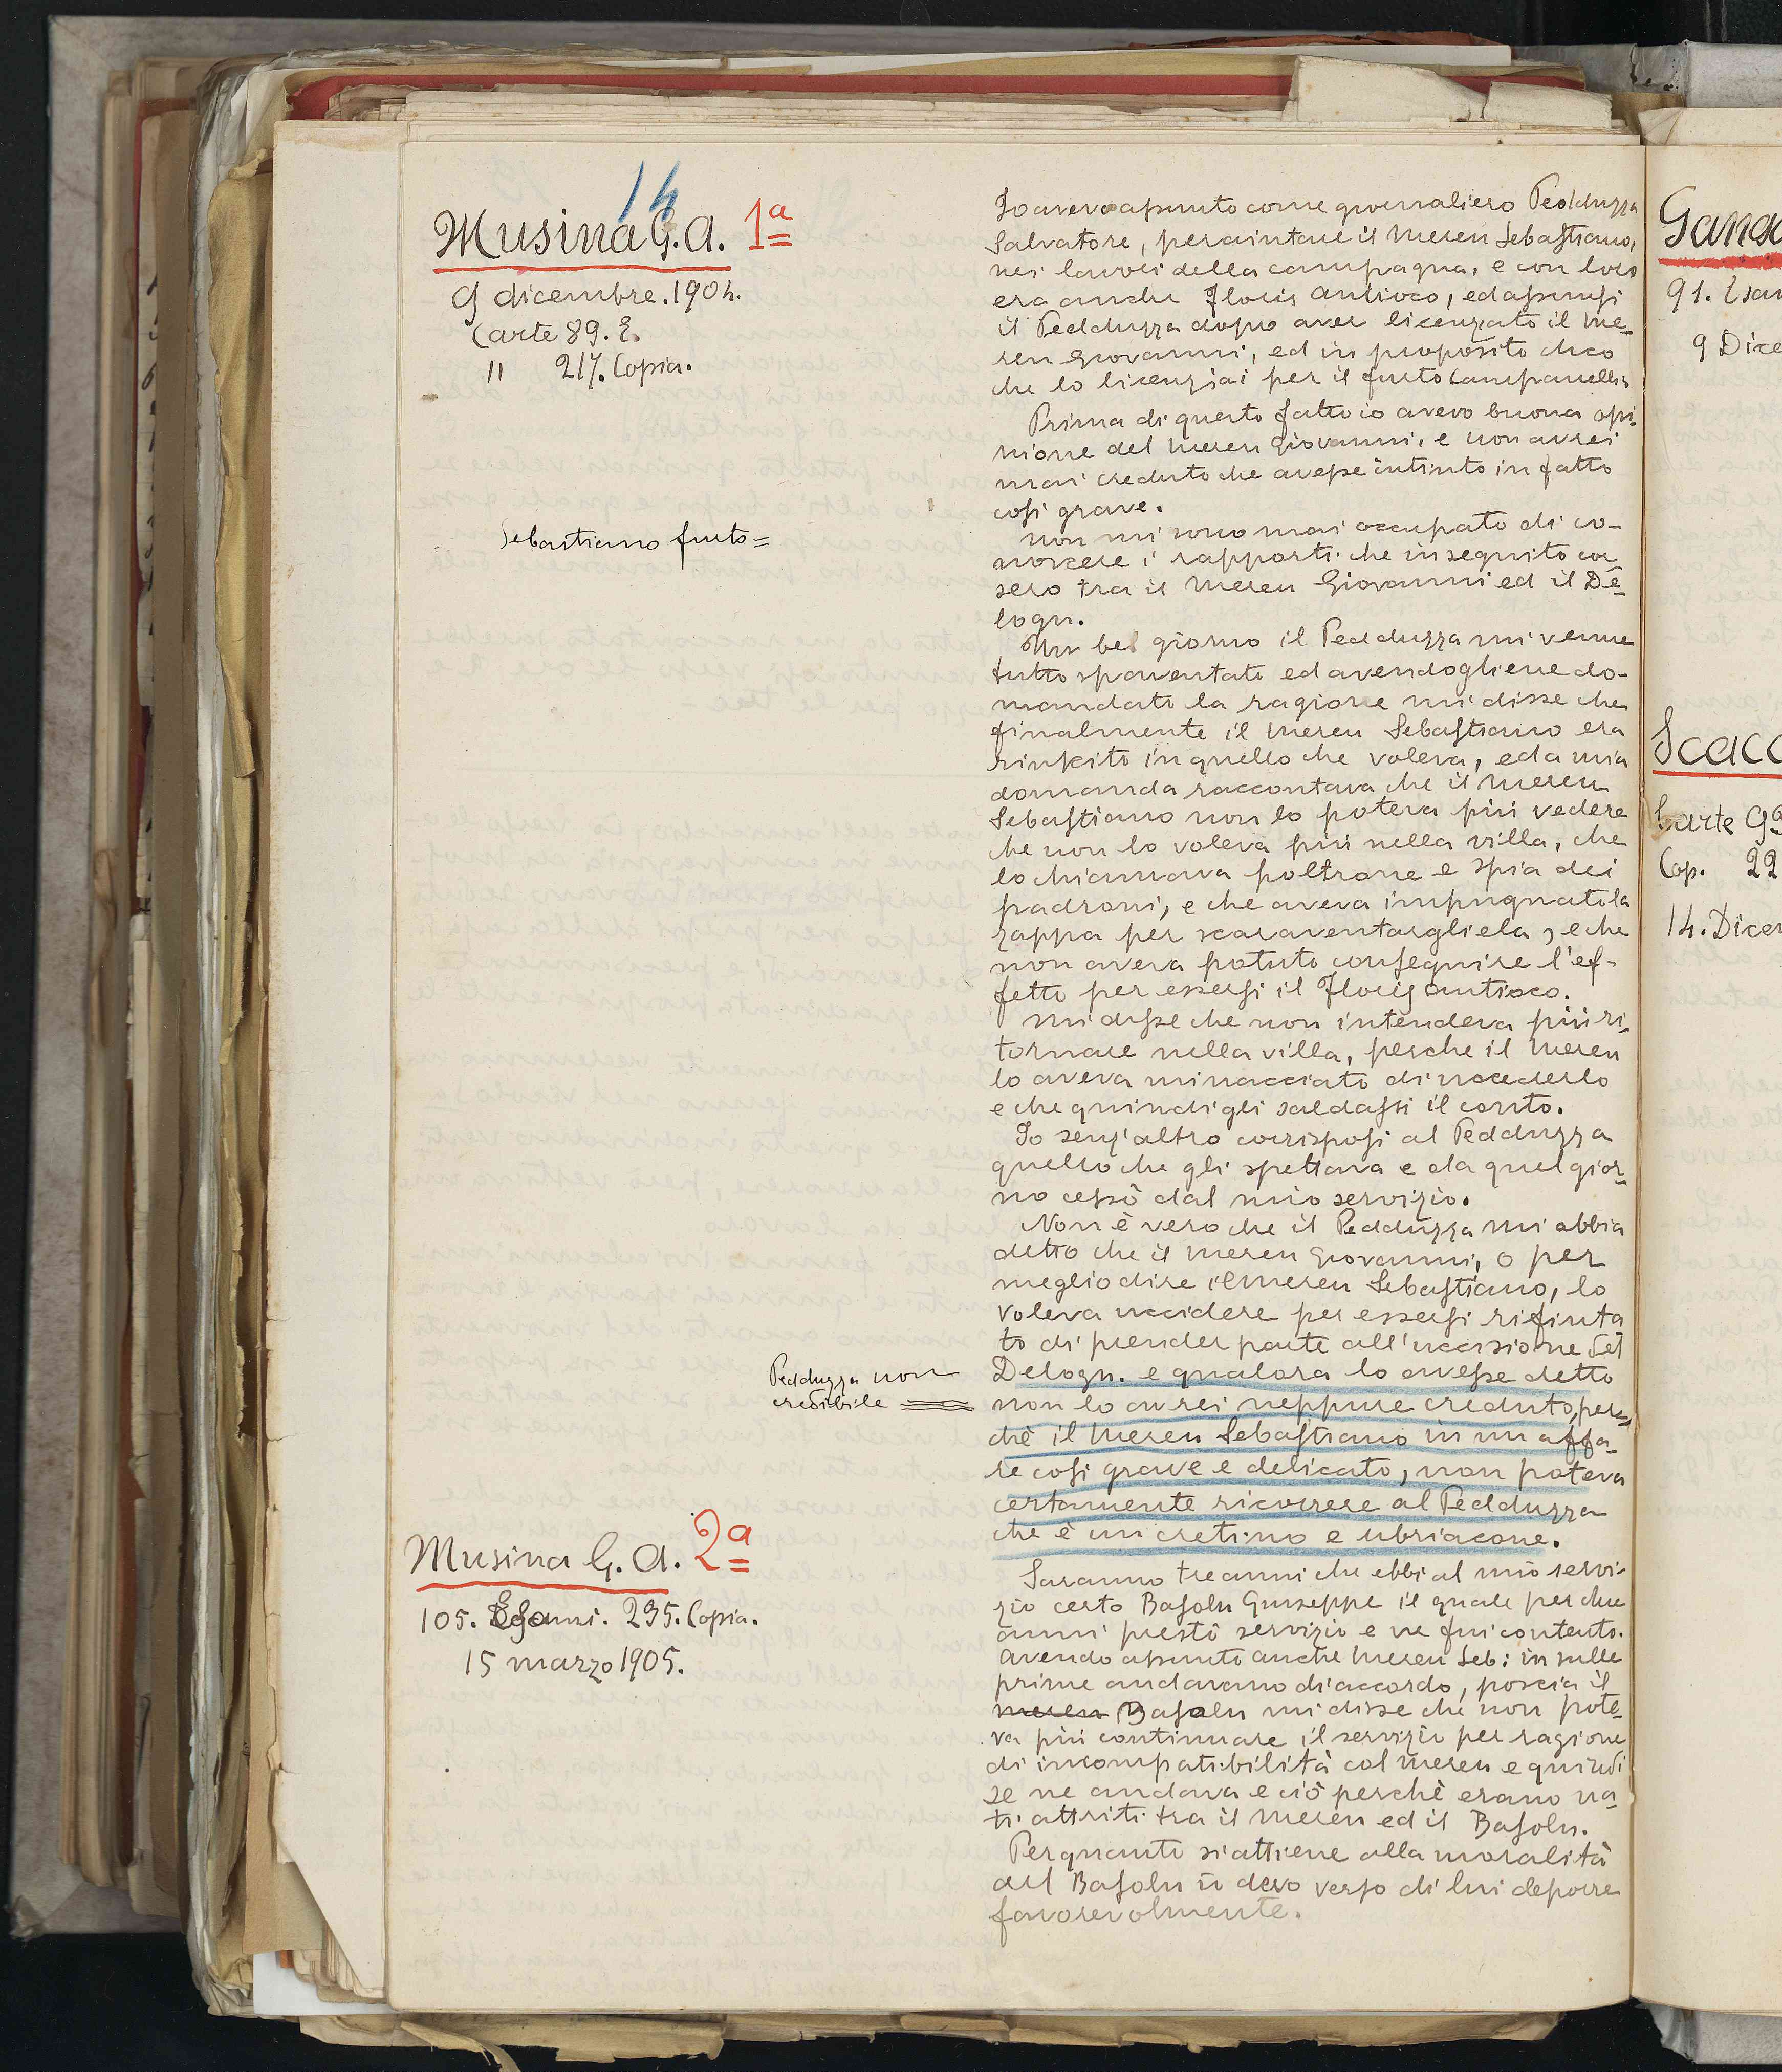 14
Musina G. A. 1ª
9 dicembre. 1904.
Carte 89. E.
" 217. Copia.
Io avevo assunto come giornaliero Pedduzza
Salvatore, per aiutare il Mereu Sebastiano,
nei lavori della campagna, e con loro
era anche Floris Antioco, ed assunsi
il Pedduzza dopo aver licenziato il Me-
reu Giovanni, ed in proposito dico
che lo licenziai per il furto Campanelli.
Prima di questo fatto io avevo buona opi-
nione del Mereu Giovanni, e non avrei
mai creduto che avesse intinto in fatto
così grave.
Sebastiano furto=
Non mi sono mai occupato di co-
noscere i rapporti che in seguito cor
sero tra il Mereu Giovanni ed il De-
logu.
Un bel giorno il Pedduzza mi venne
tutto spaventato ed avendogliene do-
mandato la ragione mi disse che
finalmente il Mereu Sebastiano era
riuscito in quello che voleva, ed a mia
domanda raccontava che il Mereu
Sebastiano non lo poteva più vedere
che non lo voleva più nella villa, che
lo chiamava poltrone e spia dei
padroni, e che aveva impugnato la
zappa per scaraventargliela, e che
non aveva potuto conseguire l'ef-
fetto per essersi il Floris antioco.
Mi disse che non intendeva più ri-
tornare nella villa, perche il Mereu
lo aveva minacciato di uccederlo
e che quindi gli saldassi il conto.
Io senz'altro corrisposi al Pedduzza
quello che gli spettava e da quel gior-
no cessò dal mio servizio.
Non è vero che il Pedduzza mi abbia
detto che il Mereu Giovanni, o per
meglio dire il Mereu Sebastiano, lo
voleva uccidere per essersi rifiuta
to di prender parte all'uccisione del
Delogu. e qualora lo avesse detto
non lo avrei neppure creduto, per=
chè il Mereu Sebastiano in un affa-
re così grave e delicato, non poteva
certamente ricorrere al Pedduzza
che è un cretino e ubriacone.
Pedduzza non
credibile
Musina G. A. 2ª
105. 235. Copia.
15 marzo 1905.
Saranno tre anni che ebbi al mio servi-
zio certo Basolu Giuseppe il quale per due
anni prestò servizio e ne fui contento.
Avendo assunto anche Mereu Seb: in sulle
prime andavano di accordo, poscia il
Mereu Basolu mi disse che non pote-
va più continuare il servizio per ragione
di incompatibilità col Mereu e quindi
se ne andava e ciò perchè erano na-
ti attriti tra il Mereu ed il Basolu.
Per quanto si attiene alla moralità
del Basolu io devo verso di lui deporre
favorevolmente.
91.
9 Dice
Scacc
Carte
Cop. 22
14. Dicem